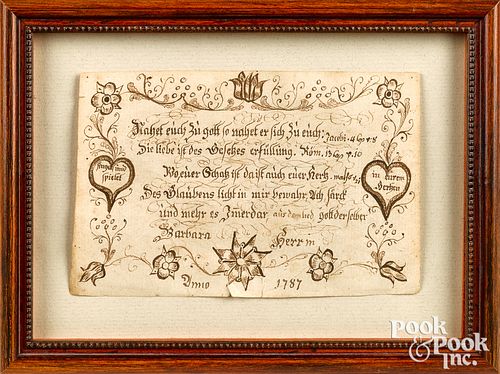 Nahet euch Zu gott so nahet er sich Zu euch. Jacobi. 4 Cap v 8
Die liebe ist des Gesetzes erfüllung. Röm. 13 Cap v. 10
Wo euer Schatz ist da ist auch euer Hertz. math: 6
Des Glaubens licht in mir bewahr. Ach stärck
und mehr es Jmerdar aus dem lied gott der selber
Barbara Herrin
Anno 1787
singet und
spielet
in eurem
Hertzen
POOK
& POOK
INC.